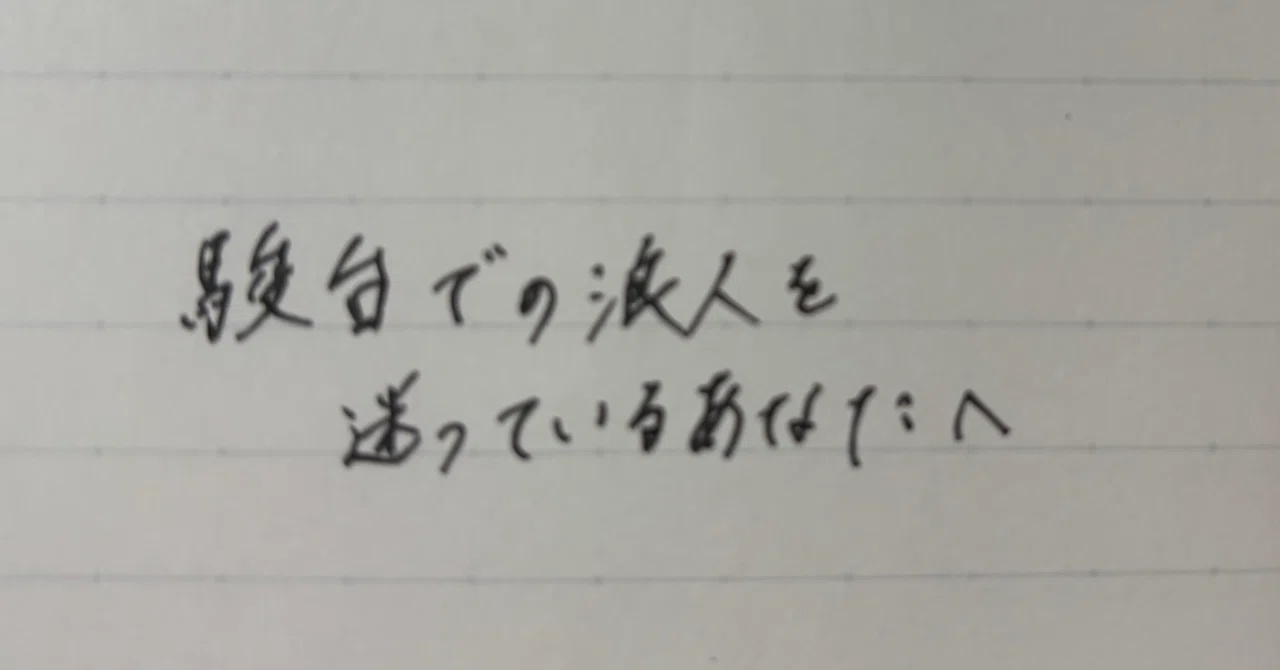 駿台での浪人を
迷っているあなたへ